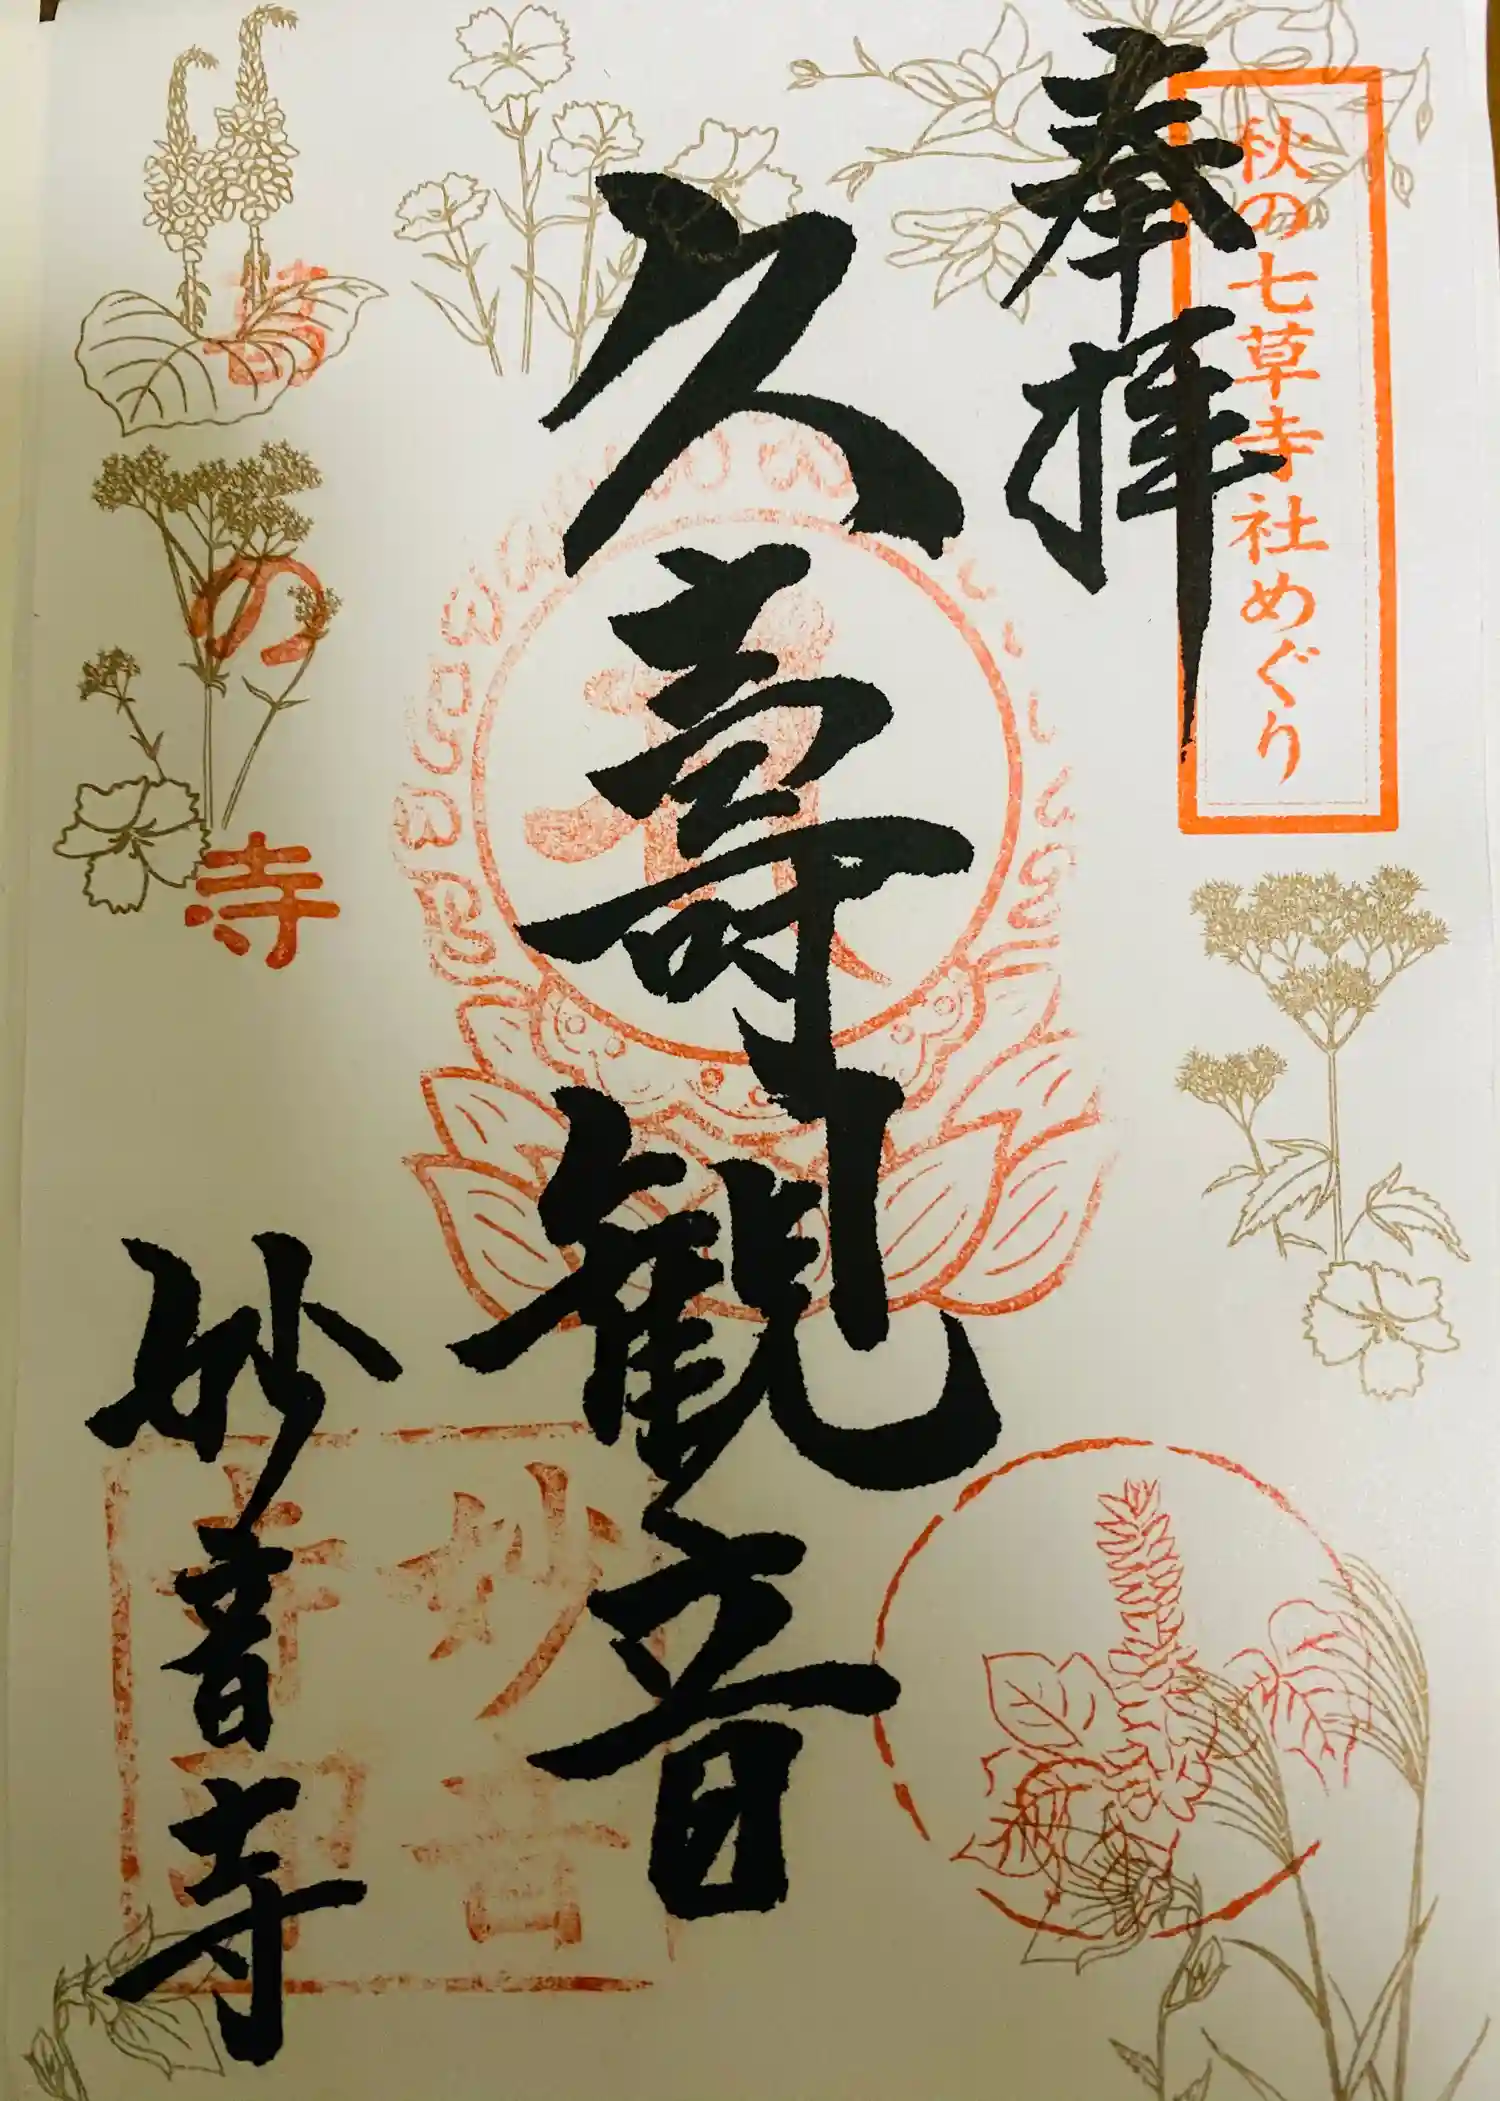 秋の七草寺社めぐり
奉拝
久壽観音
葛の寺
妙音寺
妙音寺印